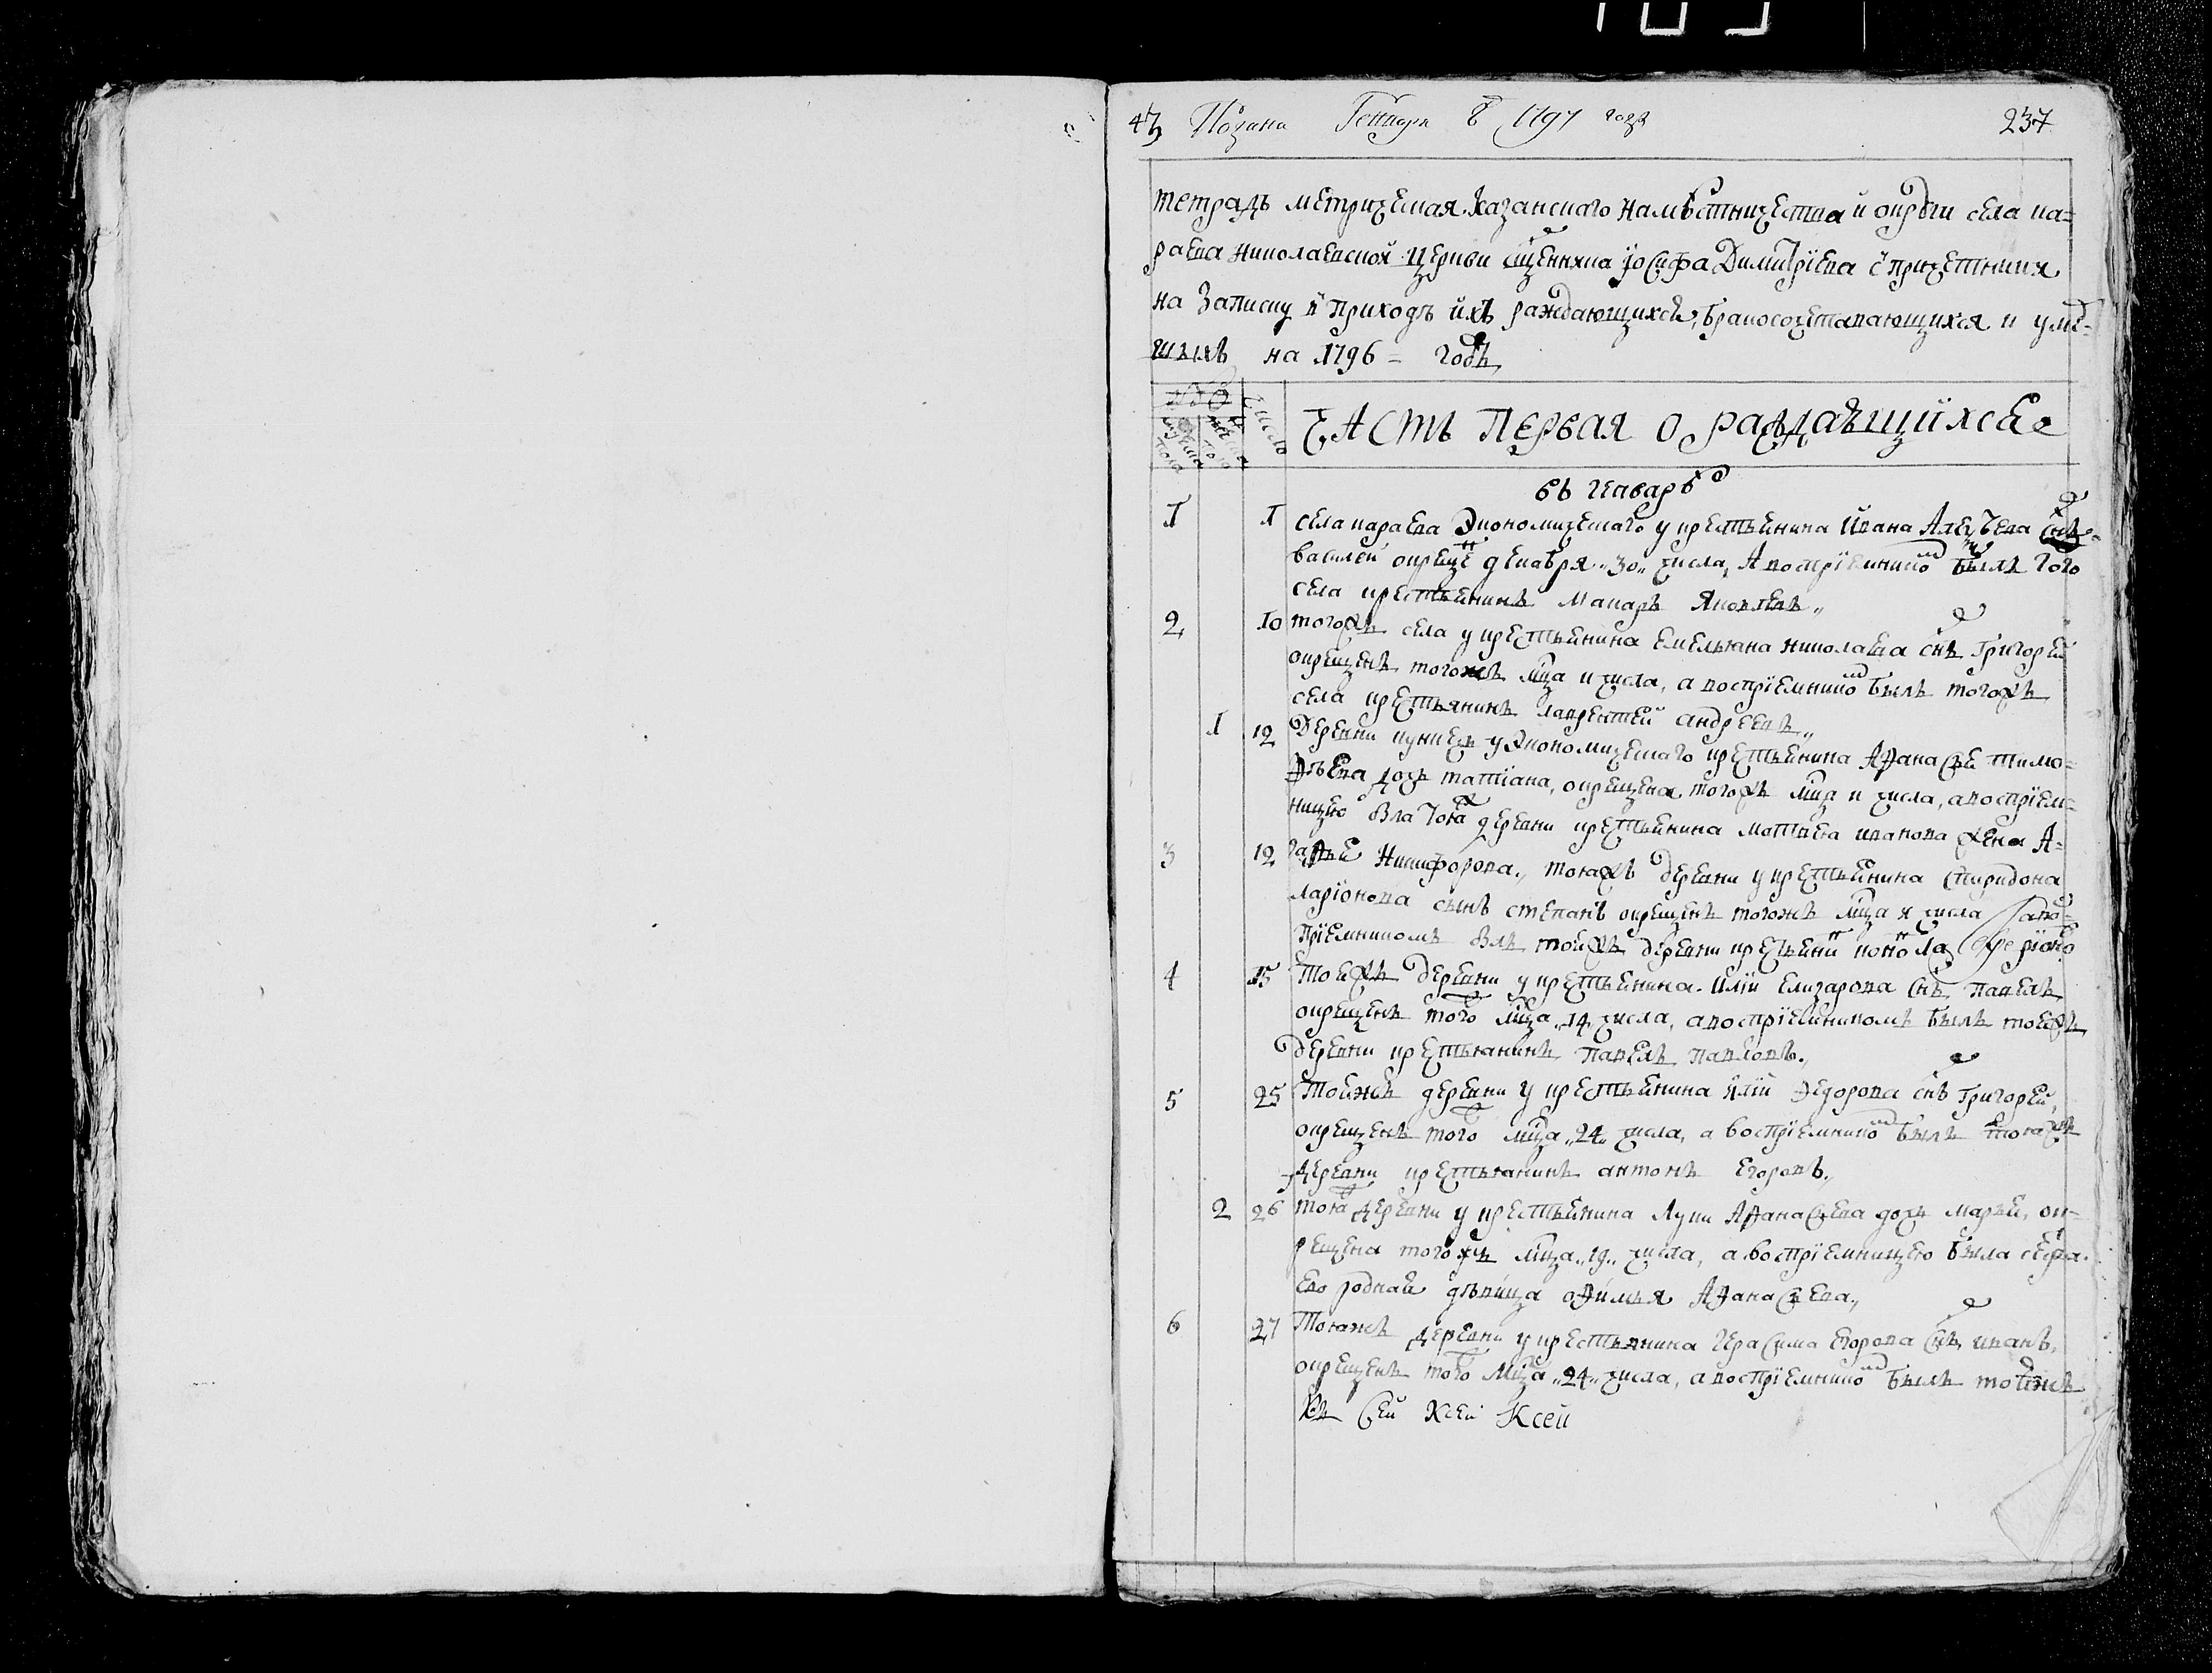 43 Подана Генваря 8 1797 года 237
тетрадь метрическая казанскаго намѣстничества и округи села ка=
раева николаевской церкви сщенника іосифа Димитріева с причетники
на записку в приходѣ ихъ раждающихся, бракосочетавающихся и умер=
шихъ на 1796 = годъ
число
мужеска пола
женска пола
ЧАСТЬ ПЕРВАЯ О РАЖДАЮЩИХСЕ
въ Генварѣ
1 1 села караева Экономическаго у крестьянина Ивана снъ
василей окрещенъ декабря „30„ числа, а воспріемникомъ былъ того
села крестьенинъ макаръ Яковлевъ„
2 10 тогожъ села у крестьенина емельяна николаева снъ Григорей
окрещенъ тогожъ мца и числа, а воспріемникомъ былъ тогожъ
села крестьянинъ лаврентей андреевъ„
1 12 Деревни у Экономическаго крестьенина Афанасья тимо=
фѣева дочь татіана, окрещена тогожъ мца и числа, а воспріем=
ницею была тоя деревни крестьенина матвея иванова жена А=
3 12 гафья Никифорова., тояжъ деревни у крестьенина спиридона
ларіонова сынъ степанъ окрещенъ тогожъ мца и числа а во=
пріемникомъ былъ тоижъ деревни
4 15 Тоежъ деревни у крестьенина. Иліи Елизарова снъ павелъ
окрещенъ того мца „14„ числа, а воспріемникомъ былъ тоежъ
деревни крестьянинъ павелъ павловъ.,
5 25 Тоижъ деревни у крестьенина Иліи Федорова снъ григорей,
окрещенъ того мца „24„ числа, а воспріемникомъ былъ тояжъ
деревни крестьянинъ антонъ Егоровъ.,
2 26 тоя деревни у крестьенина Луки Афанасьева дочь марья, ок=
рещена тогожъ мца „19„ числа, а воспріемницею была сестра
ево родная дѣвица офимья Афанасьева.,
6 27 Тояжъ деревни у крестьянина Герасима Егорова снъ иванъ,
окрещенъ того Мца „24„ числа, а воспріемникомъ былъ тоежъ
сей ксей Ксей